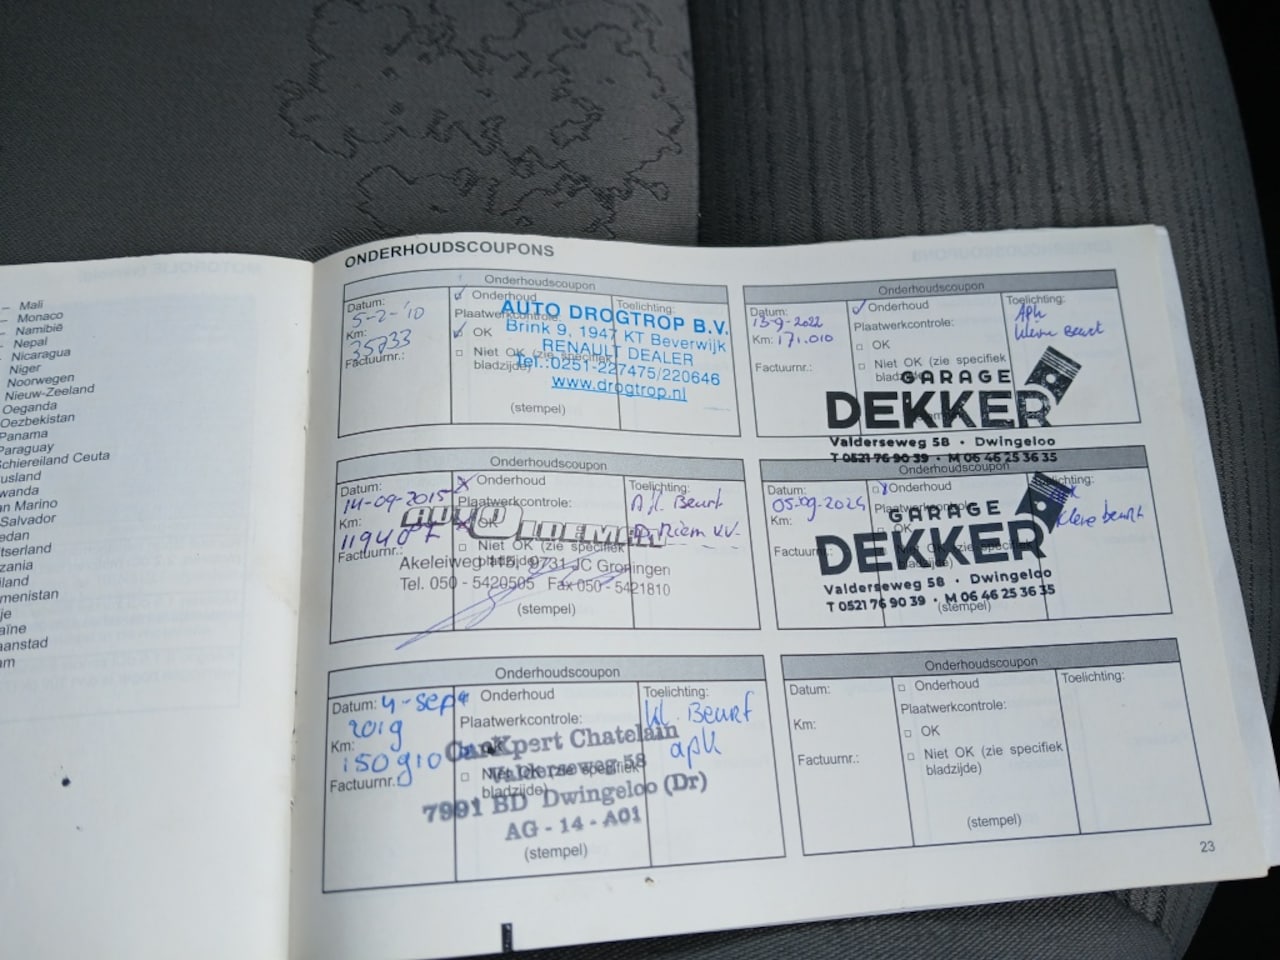 – Mali
– Monaco
– Namibië
– Nepal
Nicaragua
Niger
Noorwegen
Nieuw-Zeeland
Oeganda
Oezbekistan
Panama
Paraguay
Schiereiland Ceuta
ONDERHOUDSCOUPONS
Onderhoudscoupon
Datum:
5-2-'10
Km:
35733
Factuurnr.:
Onderhoud
Plaatwerkcontrole:
OK
Niet OK (zie specifiek
bladzijde)
(stempel)
Toelichting:
AUTO DROGTROP B.V.
Brink 9, 1947 KT Beverwijk
RENAULT DEALER
Tel.:0251-227475/220646
www.drogtrop.nl
Onderhoudscoupon
Datum:
13-9-2022
Km: 171.010
Factuurnr.:
Onderhoud
Plaatwerkcontrole:
OK
Niet OK (zie specifiek
Toelichting:
Apk
kleine Beurt
GARAGE
DEKKER
Valderseweg 58 • Dwingeloo
T 0521 76 90 39 • M 06 46 25 36 35
Onderhoudscoupon
Datum:
14-09-2015
Km:
Factuurnr.:
Onderhoud
Plaatwerkcontrole:
OK
Niet OK (zie specifiek
bladzijde)
(stempel)
Toelichting:
Beurt
Akeleiweg 9731 JC Groningen
Tel. 050 - 5420505 Fax 050 - 5421810
Onderhoudscoupon
Datum:
05-09-2024
Km:
Factuurnr.:
Onderhoud
OK
(stempel)
kleine beurt
GARAGE
DEKKER
Valderseweg 58 • Dwingeloo
T 0521 76 90 39 • M 06 46 25 36 35
Onderhoudscoupon
Datum: 4-sept
2019
Km:
150910
Factuurnr.:
Onderhoud
Plaatwerkcontrole:
Niet OK (zie specifiek
bladzijde)
(stempel)
Toelichting:
kl. Beurt
apk
CarXpert Chatelain
Valderseweg 58
7991 BD Dwingeloo (Dr)
AG - 14 - A01
Onderhoudscoupon
Datum:
Km:
Factuurnr.:
Onderhoud
Plaatwerkcontrole:
OK
Niet OK (zie specifiek
bladzijde)
(stempel)
Toelichting:
23